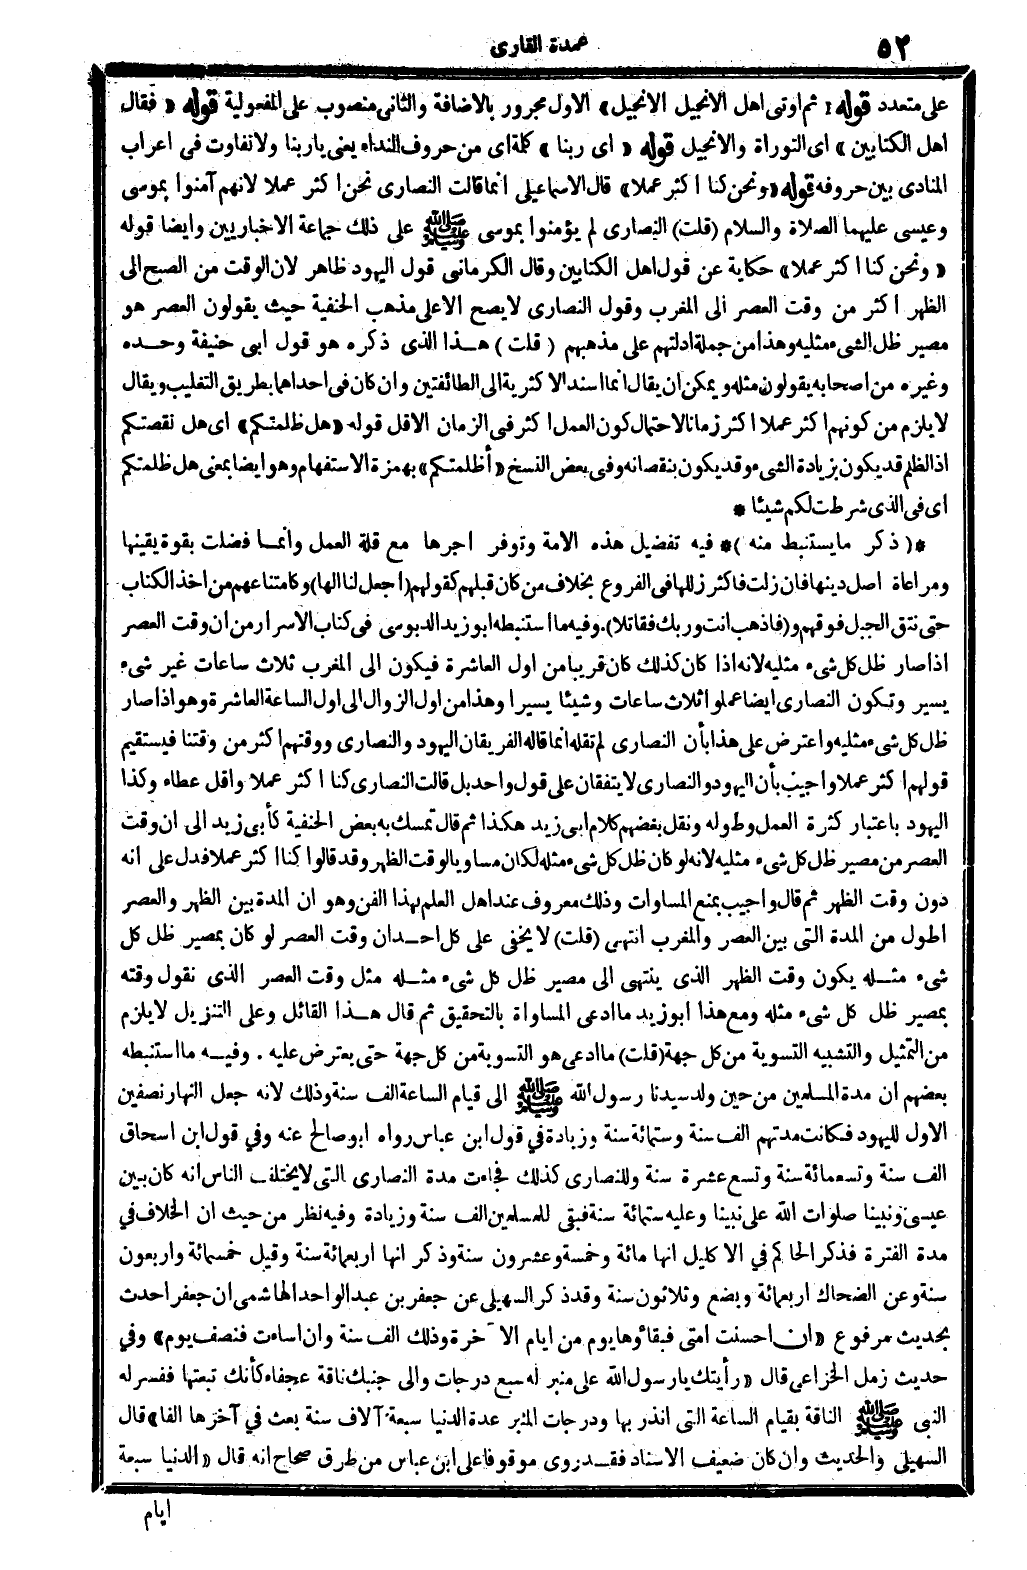 ٥٢
عمدة القارى
على متعدد قوله ؛ ثم اوتى اهل الانجيل الانجيل» الاول مجرور بالاضافة والثانى منصوب على المفعولية قوله « فقال
اهل الكتابين » اى التوراة والانجيل قوله « اى ربنا » كلمة اى من حروف النداء يعنى ياربنا ولا تفاوت فى اعراب
المنادى بين حروفه قوله «ونحن كنا اكثر عملا» قال الاسماعيلى انما قالت النصارى نحن اكثر عملا لانهم آمنوا بموسى
وعيسى عليهما الصلاة والسلام (قلت) النصارى لم يؤمنوا بموسى ﷺ على ذلك جماعة الاخباريين وايضا قوله
« ونحن كنا اكثر عملا» حكاية عن قول اهل الكتابين وقال الكرمانى قول اليهود ظاهر لان الوقت من الصبح الى
الظهر اكثر من وقت العصر الى المغرب وقول النصارى لا يصح الا على مذهب الحنفية حيث يقولون العصر هو
مصير ظل الشىء مثليه وهذا من جملة ادلتهم على مذهبهم ( قلت ) هــذا الذى ذكره هو قول ابى حنيفة وحــده
وغيره من اصحابه يقولون مثله ويمكن ان يقال انما اسند الاكثرية الى الطائفتين وان كان فى احداهما بطريق التغليب ويقال
لا يلزم من كونهم اكثر عملا اكثر زمانا لاحتمال كون العمل اكثر فى الزمان الاقل قوله «هل ظلمتكم» اى هل نقصتكم
اذ الظلم قد يكون بزيادة الشىء وقد يكون بنقصانه وفى بعض النسخ «أظلمتكم» بهمزة الاستفهام وهو ايضا بمعنى هل ظلمتكم
اى فى الذى شرطت لكم شيئا *
*( ذكر مايستنبط منه )* فيه تفضيل هذه الامة وتوفر اجرها مع قلة العمل وأنمـا فضلت بقوة يقينها
ومراعاة اصل دينها فان زلت فاكثر زللها فى الفروع بخلاف من كان قبلهم كقولهم (اجعل لنا الها) وكامتناعهم من اخذ الكتاب
حتى نتق الجبل فوقهم و(فاذهب انت وربك فقاتلا). وفيه ما استنبطه ابو زيد الدبوسى فى كتاب الاسرار من ان وقت العصر
اذا صار ظل كل شىء مثليه لانه اذا كان كذلك كان قريبا من اول العاشرة فيكون الى المغرب ثلاث ساعات غير شىء
يسير وتكون النصارى ايضا عملوا ثلاث ساعات وشيئا يسيرا وهذا من اول الزوال الى اول الساعة العاشرة وهو اذا صار
ظل كل شىء مثليه واعترض على هذا بأن النصارى لم تقله انما قاله الفريقان اليهود والنصارى ووقتهم اكثر من وقتنا فيستقيم
قولهم اكثر عملا واجيب بأن اليهود والنصارى لا يتفقان على قول واحد بل قالت النصارى كنا اكثر عملا واقل عطاء وكذا
اليهود باعتبار كثرة العمل وطوله ونقل بعضهم كلام ابى زيد هكذا ثم قال تمسك به بعض الحنفية كأبى زيد الى ان وقت
العصر من مصير ظل كل شىء مثليه لانه لو كان ظل كل شىء مثله لكان مساويا لوقت الظهر وقد قالوا كنا اكثر عملا فدل على انه
دون وقت الظهر ثم قال واجيب بمنع المساوات وذلك معروف عند اهل العلم بهذا الفن وهو ان المدة بين الظهر والعصر
اطول من المدة التى بين العصر والمغرب انتهى (قلت) لا يخفى على كل احــد ان وقت العصر لو كان بمصير ظل كل
شىء مثــله يكون وقت الظهر الذى ينتهى الى مصير ظل كل شىء مثــله مثل وقت العصر الذى نقول وقته
بمصير ظل كل شىء مثله ومع هذا ابوزيد ما ادعى المساواة بالتحقيق ثم قال هــذا القائل وعلى التنزيل لا يلزم
من التمثيل والتشبيه التسوية من كل جهة (قلت) ما ادعى هو التسوية من كل جهة حتى يعترض عليه . وفيــه ما استنبطه
بعضهم ان مدة المسلمين من حين ولد سيدنا رسول الله ﷺ الى قيام الساعة الف سنة وذلك لانه جعل النهار نصفين
الاول لليهود فكانت مدتهم الف سنة وستمائة سنة وزيادة في قول ابن عباس رواه ابو صالح عنه وفي قول ابن اسحاق
الف سنة وتسعمائة سنة وتسع عشرة سنة وللنصارى كذلك فجاءت مدة النصارى التى لا يختلف الناس انه كان بين
عيسى ونبينا صلوات الله على نبينا وعليه ستمائة سنة فبقى للمسلمين الف سنة وزيادة وفيه نظر من حيث ان الخلاف في
مدة الفترة فذكر الحاكم في الاكليل انها مائة وخمسة وعشرون سنة وذكر انها اربعمائة سنة وقيل خمسمائة واربعون
سنة وعن الضحاك اربعمائة وبضع وثلاثون سنة وقد ذكر السهيلى عن جعفر بن عبد الواحد الهاشمى ان جعفر احدث
بحديث مرفوع «ان احسنت امتى فبقاؤها يوم من ايام الآخرة وذلك الف سنة وان اساءت فنصف يوم» وفي
حديث زمل الخزاعى قال « رأيتك يارسول الله على منبر له سبع درجات والى جنبك ناقة عجفاء كأنك تبعتها ففسر له
النبى ﷺ الناقة بقيام الساعة التى انذر بها ودرجات المنبر عدة الدنيا سبعة آلاف سنة بعث في آخرها الفا» قال
السهيلى والحديث وان كان ضعيف الاسناد فقــد روى موقوفا على ابن عباس من طرق صحاح انه قال «الدنيا سبعة
ايام